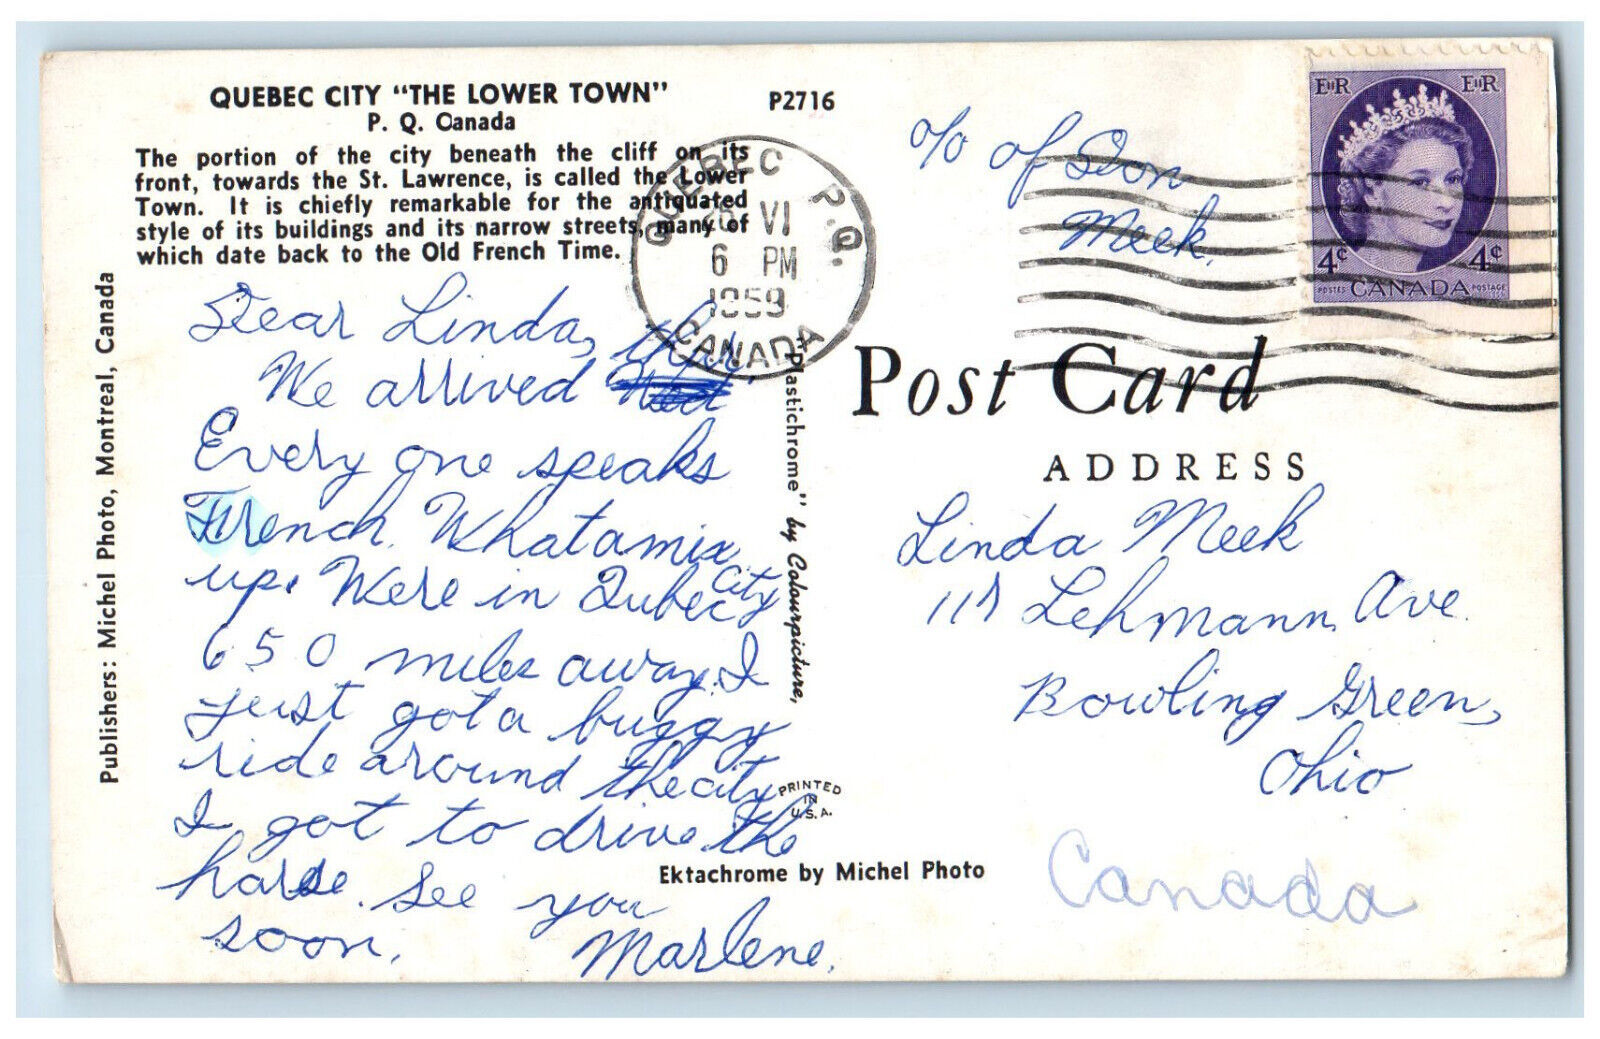 QUEBEC CITY "THE LOWER TOWN"
P. Q. Canada
P2716
The portion of the city beneath the cliff on its
front, towards the St. Lawrence, is called the Lower
Town. It is chiefly remarkable for the antiquated
style of its buildings and its narrow streets, many of
which date back to the Old French Time.
Publishers: Michel Photo, Montreal, Canada
QUEBEC P.Q.
VI
6 PM
1959
CANADA
EIIR EIIR
4¢ 4¢
POSTES CANADA POSTAGE
c/o of Don
Meek.
Dear Linda,
We arrived
Every one speaks
French. Whatamix
up. Were in Qubec City
650 miles away. I
just got a buggy
ride around the city
I got to drive the
harse. See you
soon.
Marlene.
"Plastichrome" by Colourpicture,
PRINTED
IN
U.S.A.
Ektachrome by Michel Photo
Post Card
ADDRESS
Linda Meek
Lehmann Ave.
Bowling Green,
Ohio
Canada